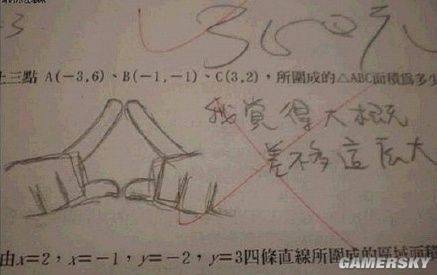 上三點 A(-3,6)、B(-1,-1)、C(3,2),所圍成的△ABC面積為多少
我覺得大概
差不多這么大
由x=2,x=-1,y=-2,y=3四條直線所圍成的區域面積
GAMERSKY